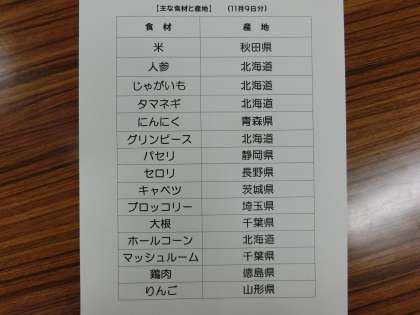 【主な食材と産地】　（11月9日分）
食　材　産　地
米　秋田県
人参　北海道
じゃがいも　北海道
タマネギ　北海道
にんにく　青森県
グリンピース　北海道
パセリ　静岡県
セロリ　長野県
キャベツ　茨城県
ブロッコリー　埼玉県
大根　千葉県
ホールコーン　北海道
マッシュルーム　千葉県
鶏肉　徳島県
りんご　山形県